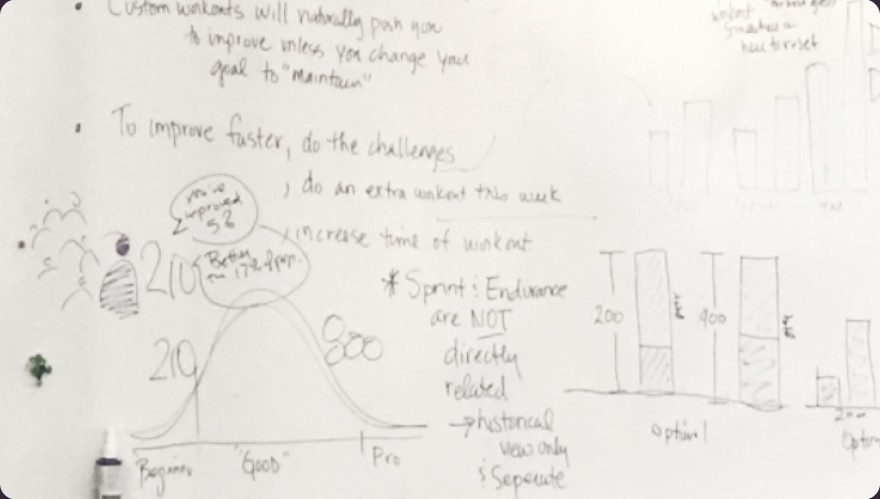 Custom workouts will naturally push you
to improve unless you change your
goal to "maintain"
To improve faster, do the challenges
, do an extra workout this week
, increase time of workout
you've
improved
58
Better
210
* Sprint & Endurance
are NOT
directly
related
→ historical
view only
& Seperate
210
800
Beginner
"Good"
Pro
workout
200
400
Option 1
200